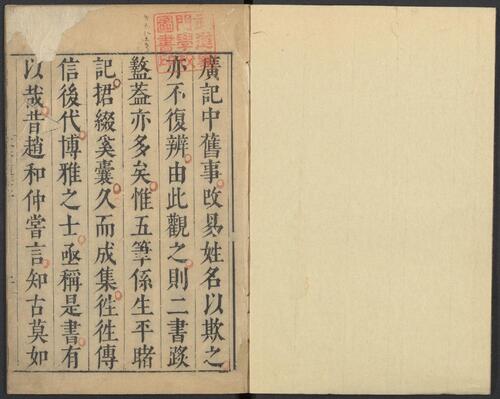 廣記中舊事改易姓名以欺之
亦不復辨由此觀之則二書踳
盭蓋亦多矣惟五筆係生平睹
記捃綴奚囊久而成集徃徃傳
信後代博雅之士亟稱是書有
以哉昔趙和仲嘗言知古莫如
門學校
圖書印